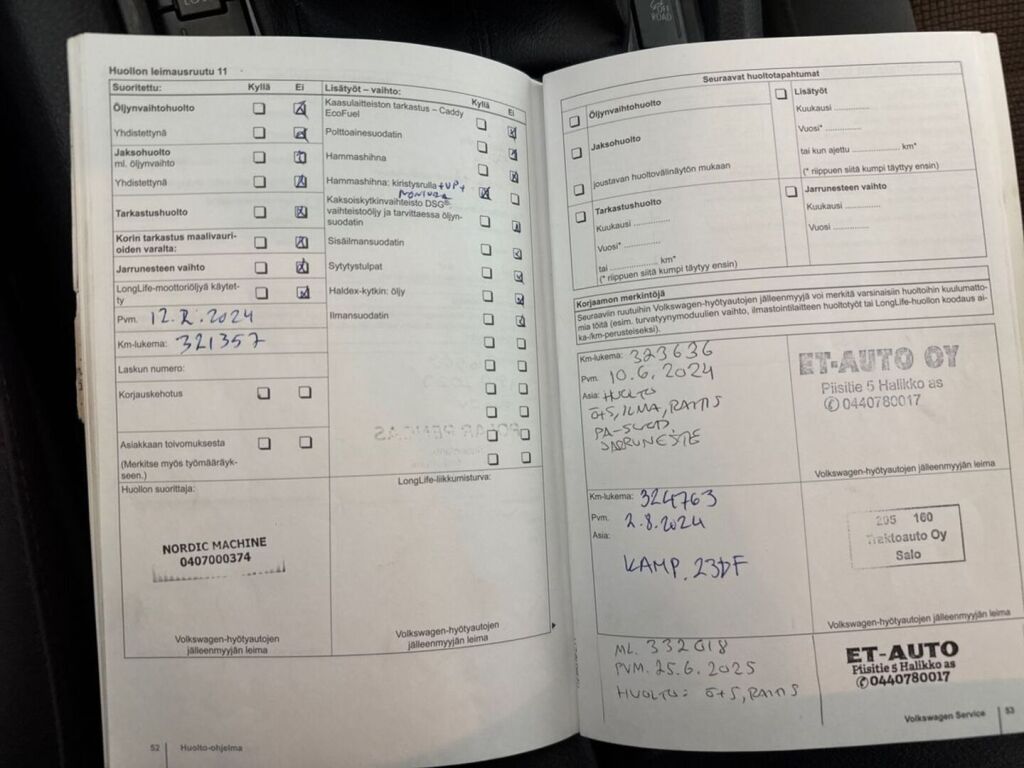 OFF
ROAD
Huollon leimausruutu 11
Suoritettu: Kyllä Ei
Öljynvaihtohuolto
Yhdistettynä
Jaksohuolto
ml. öljynvaihto
Yhdistettynä
Tarkastushuolto
Korin tarkastus maalivauri-
oiden varalta:
Jarrunesteen vaihto
LongLife-moottoriöljyä käytet-
ty
Pvm. 12.2.2024
Km-lukema: 321357
Laskun numero:
Korjauskehotus
Asiakkaan toivomuksesta
(Merkitse myös työmääräyk-
seen.)
Huollon suorittaja:
NORDIC MACHINE
0407000374
Volkswagen-hyötyautojen
jälleenmyyjän leima
Lisätyöt – vaihto: Kyllä Ei
Kaasulaitteiston tarkastus – Caddy
EcoFuel
Polttoainesuodatin
Hammashihna
Hammashihna: kiristysrulla +VP+
Kaksoiskytkinvaihteisto DSG®:
vaihteistoöljy ja tarvittaessa öljyn-
suodatin
Sisäilmansuodatin
Sytytystulpat
Haldex-kytkin: öljy
Ilmansuodatin
LongLife-liikkumisturva:
Volkswagen-hyötyautojen
jälleenmyyjän leima
52 Huolto-ohjelma
Seuraavat huoltotapahtumat
Öljynvaihtohuolto
Jaksohuolto
joustavan huoltovälinäytön mukaan
Tarkastushuolto
Kuukausi ..............
Vuosi* ..............
tai .................. km*
(* riippuen siitä kumpi täytyy ensin)
Lisätyöt
Kuukausi ..............
Vuosi* ..............
tai kun ajettu .................. km*
(* riippuen siitä kumpi täyttyy ensin)
Jarrunesteen vaihto
Kuukausi ..............
Vuosi ..............
Korjaamon merkintöjä
Seuraaviin ruutuihin Volkswagen-hyötyautojen jälleenmyyjä voi merkitä varsinaisiin huoltoihin kuulumatto-
mia töitä (esim. turvatyynymoduulien vaihto, ilmastointilaitteen huoltotyöt tai LongLife-huollon koodaus ai-
ka-/km-perusteiseksi).
Km-lukema: 323636
Pvm. 10.6.2024
Asia: HUOLTO
Ö+S, ILMA, RAITIS
PA-SUOD.
JARRUNESTE
ET-AUTO OY
Piisitie 5 Halikko as
✆0440780017
Volkswagen-hyötyautojen jälleenmyyjän leima
Km-lukema: 324763
Pvm. 2.8.2024
Asia:
KAMP. 23DF
205 160
Traktoauto Oy
Salo
Volkswagen-hyötyautojen jälleenmyyjän leima
ML. 332018
PVM. 25.6.2025
HUOLTO: Ö+S, RAITIS
ET-AUTO
Piisitie 5 Halikko as
✆0440780017
Volkswagen Service 53